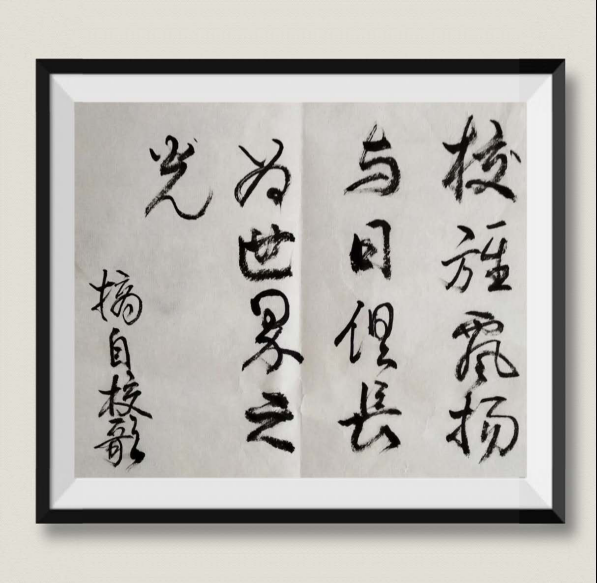 校旌飘扬
与日俱長
为世界之
光
摘自校歌